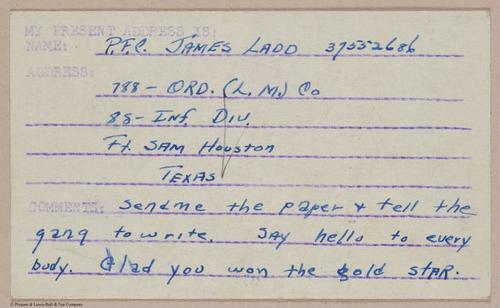 MY PRESENT ADDRESS IS:
NAME: P.F.C. JAMES LADD 37552686
ADDRESS:
788 - ORD. (L.M.) Co
88 - Inf. DIV.
Ft. SAM Houston
TEXAS
COMMENTS: Send me the paper & tell the
gang to write. SAY hello to every
body. Glad you won the gold STAR.
© Process & Lewis Bolt & Nut Company